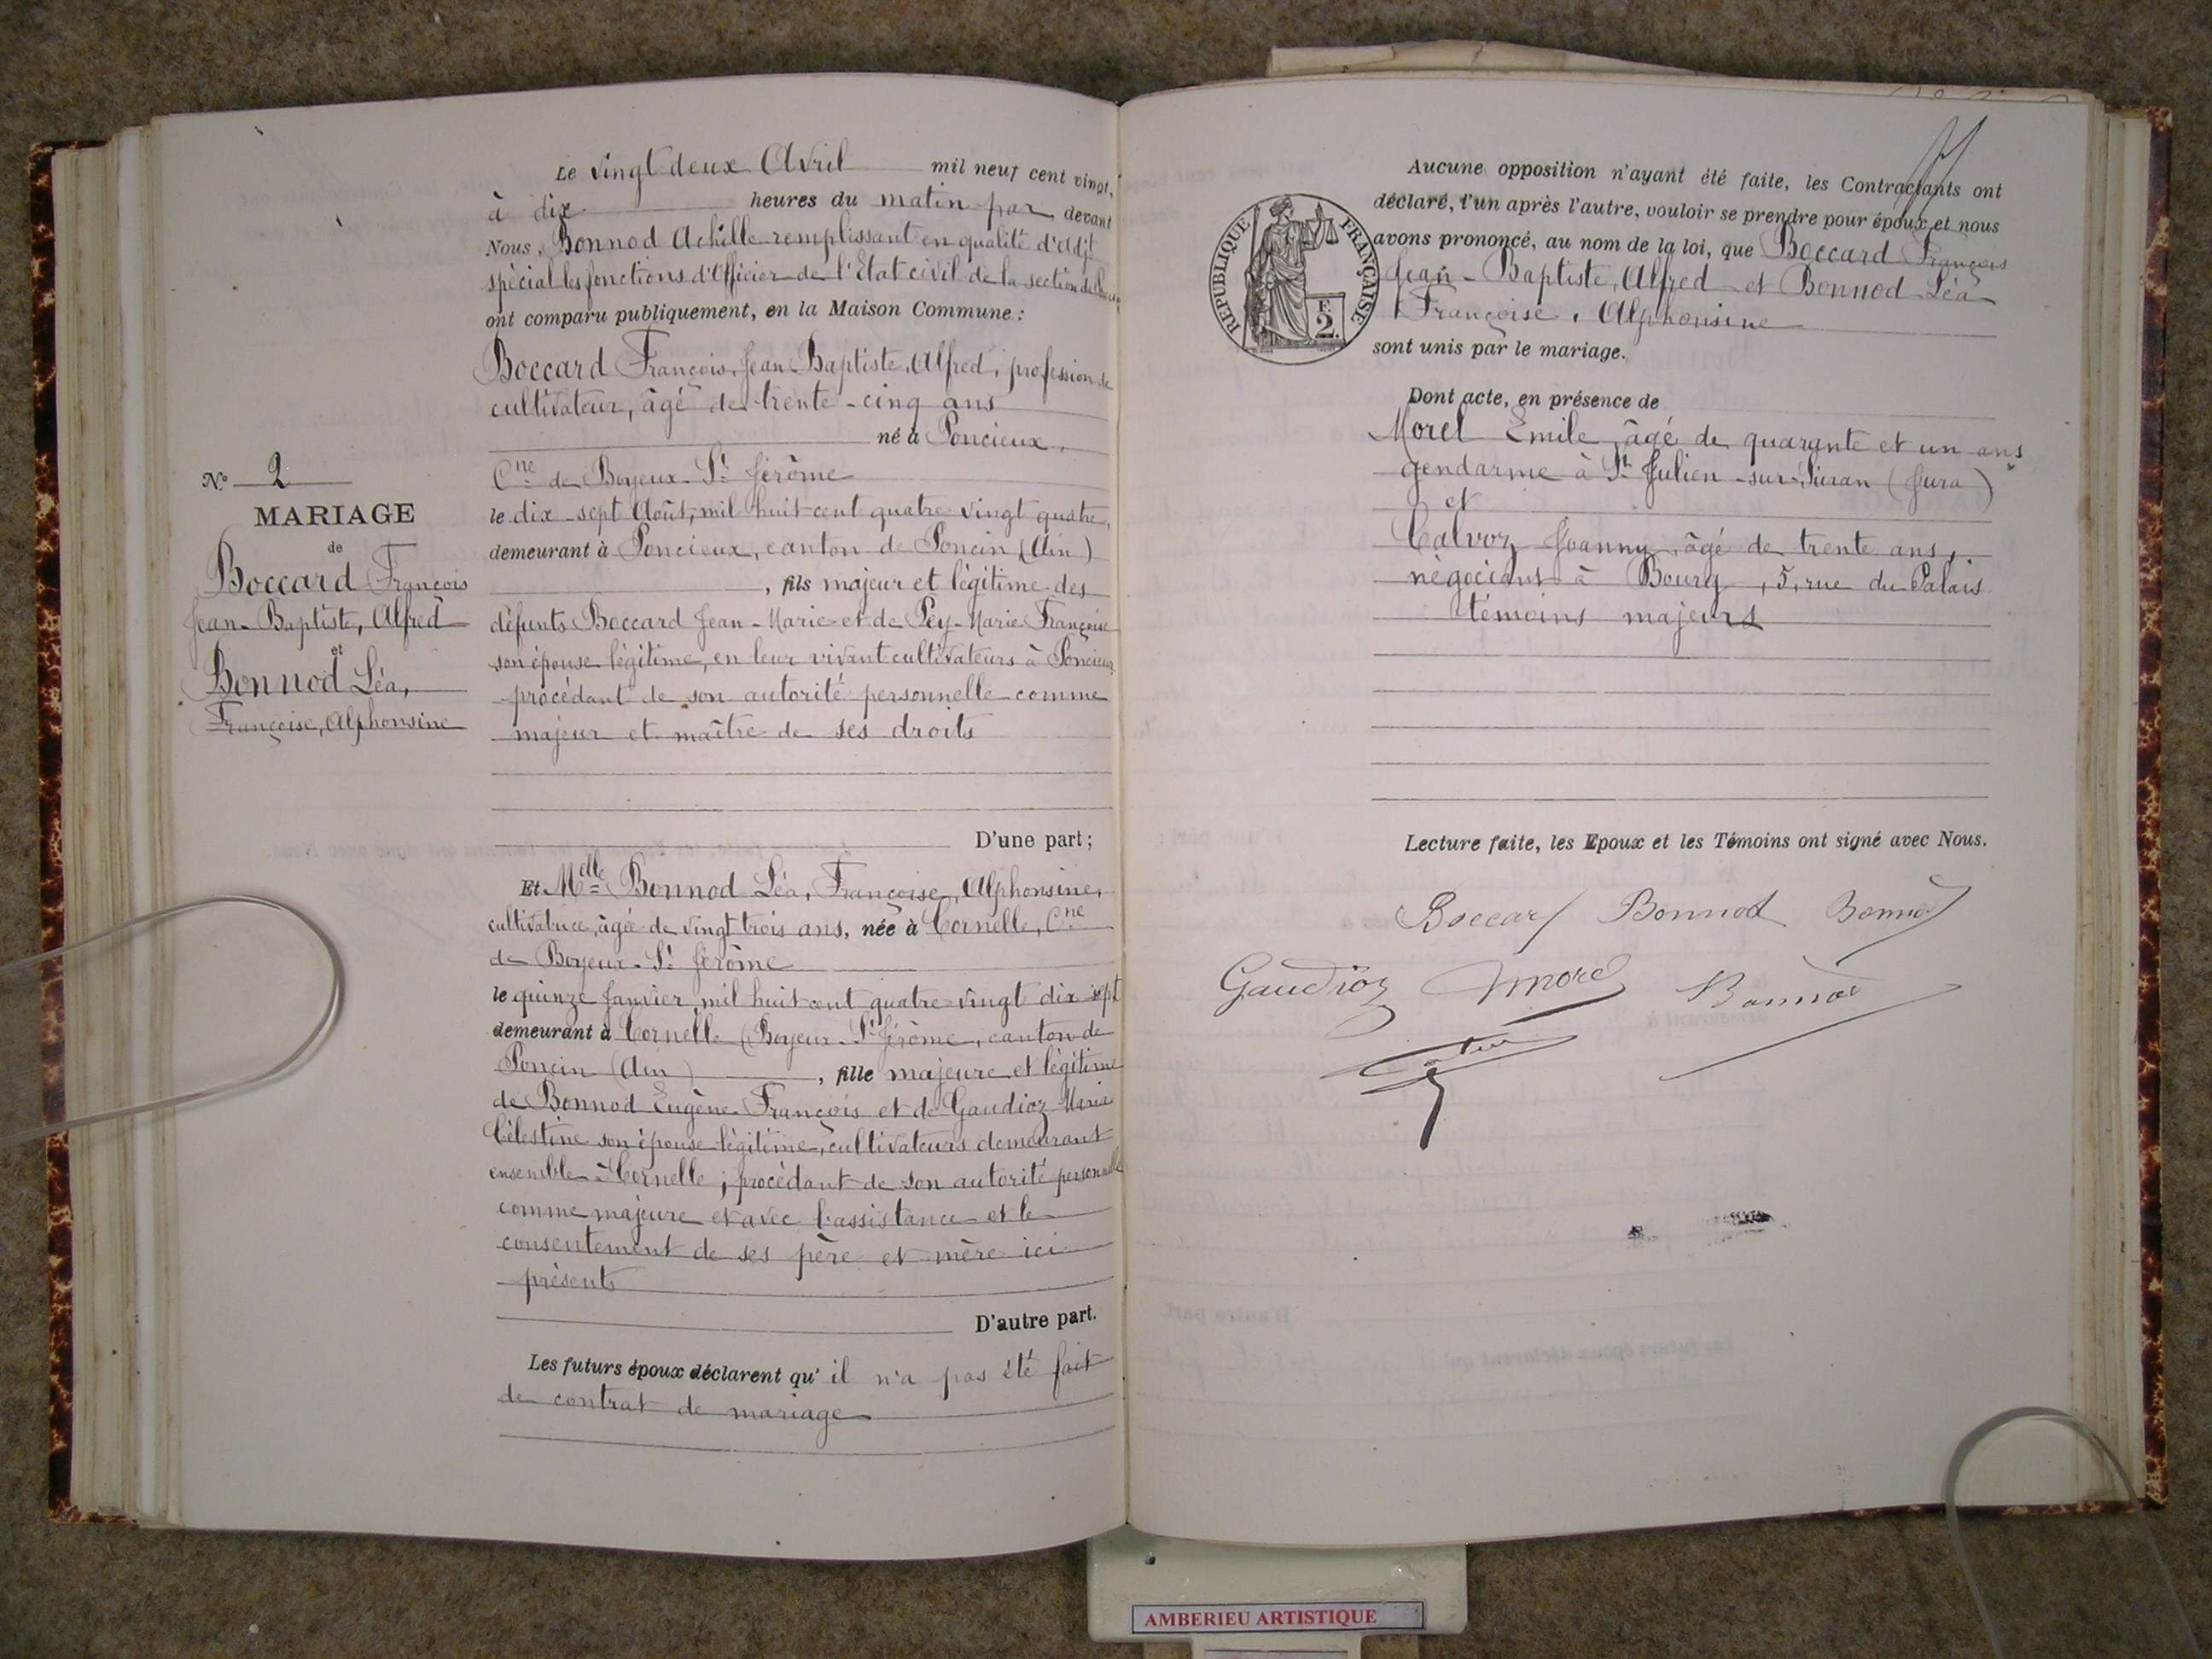 Le vingt deux Avril mil neuf cent vingt,
à dix heures du matin par devant
Nous, Bonnod Achille remplissant en qualité d'Adjt
spécial les fonctions d'Officier de l'Etat civil de la section de
ont comparu publiquement, en la Maison Commune :
Boccard François, Jean Baptiste, Alfred, profession de
cultivateur, âgé de trente-cinq ans
né à Poncieux,
Cne de Boyeux-St Jérôme
le dix-sept Août, mil huit cent quatre vingt quatre,
demeurant à Poncieux, canton de Poncin (Ain)
, fils majeur et légitime des
défunts Boccard Jean-Marie et de Pey-Marie Françoise
son épouse légitime, en leur vivant cultivateurs à Poncieux
procédant de son autorité personnelle comme
majeur et maître de ses droits
D'une part ;
Et Melle Bonnod Léa, Françoise, Alphonsine,
cultivatrice, âgée de vingt trois ans, née à Cornelle, Cne
de Boyeux-St Jérôme
le quinze Janvier mil huit cent quatre vingt dix sept
demeurant à Cornelle (Boyeux-St Jérôme, canton de
Poncin (Ain) , fille majeure et légitime
de Bonnod Eugène François et de Gaudioz Maria
Célestine son épouse légitime, cultivateurs demeurant
ensemble à Cornelle ; procédant de son autorité personnelle
comme majeure et avec l'assistance et le
consentement de ses père et mère ici
présents
D'autre part.
Les futurs époux déclarent qu'il n'a pas été fait
de contrat de mariage
N° 2
MARIAGE
de
Boccard François
Jean-Baptiste, Alfred
et
Bonnod Léa,
Françoise, Alphonsine
Aucune opposition n'ayant été faite, les Contractants ont
déclaré, l'un après l'autre, vouloir se prendre pour époux et nous
avons prononcé, au nom de la loi, que Boccard François
Jean-Baptiste, Alfred et Bonnod Léa
Françoise, Alphonsine
sont unis par le mariage.
RÉPUBLIQUE FRANÇAISE
F.
2.
Dont acte, en présence de
Morel Emile, âgé de quarante et un ans
gendarme à St Julien-sur-Suran (Jura)
et
Calvoz Joanny, âgé de trente ans,
négociant à Bourg, 5, rue du Palais
témoins majeurs
Lecture faite, les Epoux et les Témoins ont signé avec Nous.
Boccard Bonnod Bonnod
Gaudioz Morel Bonnod
AMBERIEU ARTISTIQUE